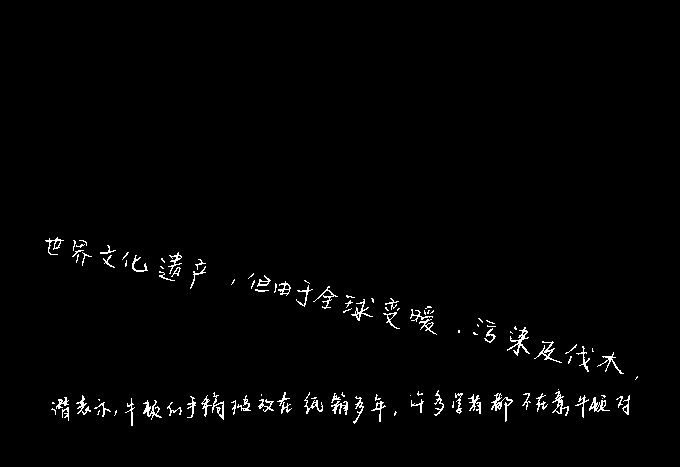 世界文化遗产，但由于全球变暖．污染及伐木，
谱表示，牛顿的手稿被放在纸箱多年，许多学者都不在意牛顿对